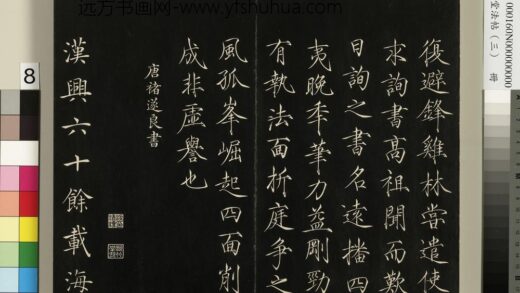 远方书画网-www.yfshuhua.com
000160N00000000
堂法帖（三） 冊
復避鋒雞林嘗遣使
求詢書高祖聞而歎
曰詢之書名遠播四
夷晚年筆力益剛勁
有執法面折庭爭之
風孤峯崛起四面削
成非虛譽也
唐褚遂良書
漢興六十餘載海
8